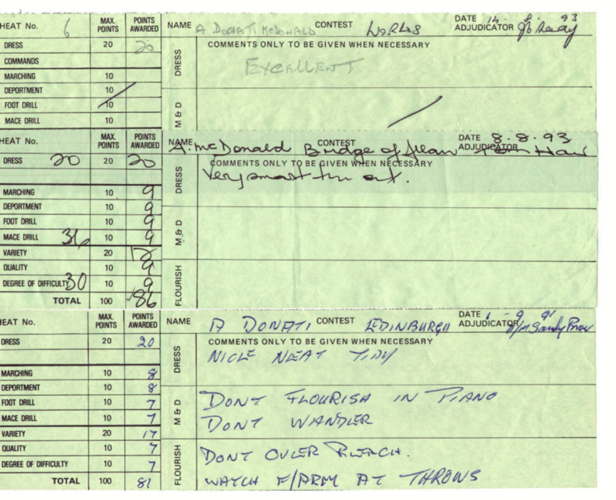 HEAT No. 6 MAX. POINTS POINTS AWARDED NAME A DONATI McDONALD CONTEST WORLDS DATE 14. 93
ADJUDICATOR
DRESS 20 20 DRESS COMMENTS ONLY TO BE GIVEN WHEN NECESSARY
COMMANDS EXCELLENT
MARCHING 10
DEPORTMENT 10 M & D
FOOT DRILL 10
MACE DRILL 10
HEAT No. MAX. POINTS POINTS AWARDED NAME A. McDonald CONTEST Bridge of Allan DATE 8.8.93
ADJUDICATOR Tom Hair
DRESS 20 20 20 DRESS COMMENTS ONLY TO BE GIVEN WHEN NECESSARY
Very smart turn out.
MARCHING 10 9
DEPORTMENT 10 9 M & D
FOOT DRILL 10 9
MACE DRILL 36 10 9
VARIETY 20
QUALITY 10 9 FLOURISH
DEGREE OF DIFFICULTY 30 10 9
TOTAL 100 86
HEAT No. MAX. POINTS POINTS AWARDED NAME A DONATI CONTEST EDINBURGH DATE 1 - 9 91
ADJUDICATOR
DRESS 20 20 DRESS COMMENTS ONLY TO BE GIVEN WHEN NECESSARY
NICE NEAT TIDY
MARCHING 10 8
DEPORTMENT 10 8 M & D DONT FLOURISH IN PIANO
FOOT DRILL 10 7
MACE DRILL 10 7 DONT WANDLER
VARIETY 20 17
QUALITY 10 7 FLOURISH DONT OVER REACH.
DEGREE OF DIFFICULTY 10 7
TOTAL 100 81 WATCH F/ARM AT THROWS